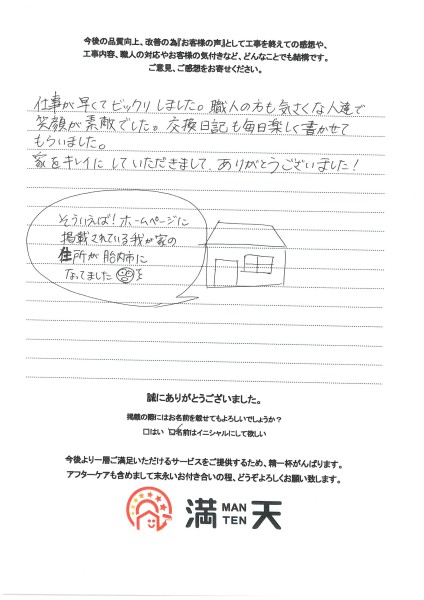 今後の品質向上、改善の為『お客様の声』として工事を終えての感想や、
工事内容、職人の対応やお客様の気付きなど、どんなことでも結構です。
ご意見、ご感想をお寄せください。
仕事が早くてビックリしました。職人の方も気さくな人達で
笑顔が素敵でした。交換日記も毎日楽しく書かせて
もらいました。
家をキレイにしていただきまして、ありがとうございました！
そういえば！ホームページに
掲載されている我が家の
住所が胎内市に
なってました
誠にありがとうございました。
掲載の際にはお名前を載せてもよろしいでしょうか？
□はい □名前はイニシャルにして欲しい
今後より一層ご満足いただけるサービスをご提供するため、精一杯がんばります。
アフターケアも含めまして末永いお付き合いの程、どうぞよろしくお願い致します。
満 MAN TEN 天